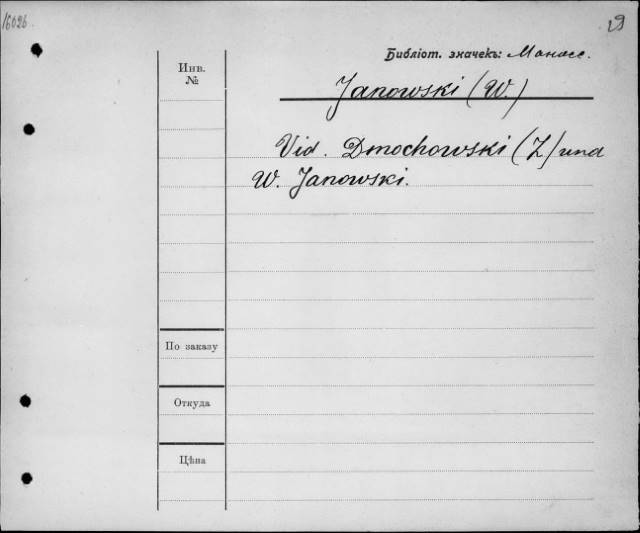 16026
29
Библіот. значекъ: Манасс.
Инв.
№
Janowski (W.)
Vid. Dmochowski (Z) und
W. Janowski.
По заказу
Откуда
Цѣна